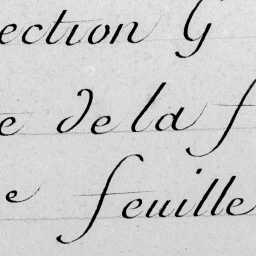 ection G
e de la f
e feuille